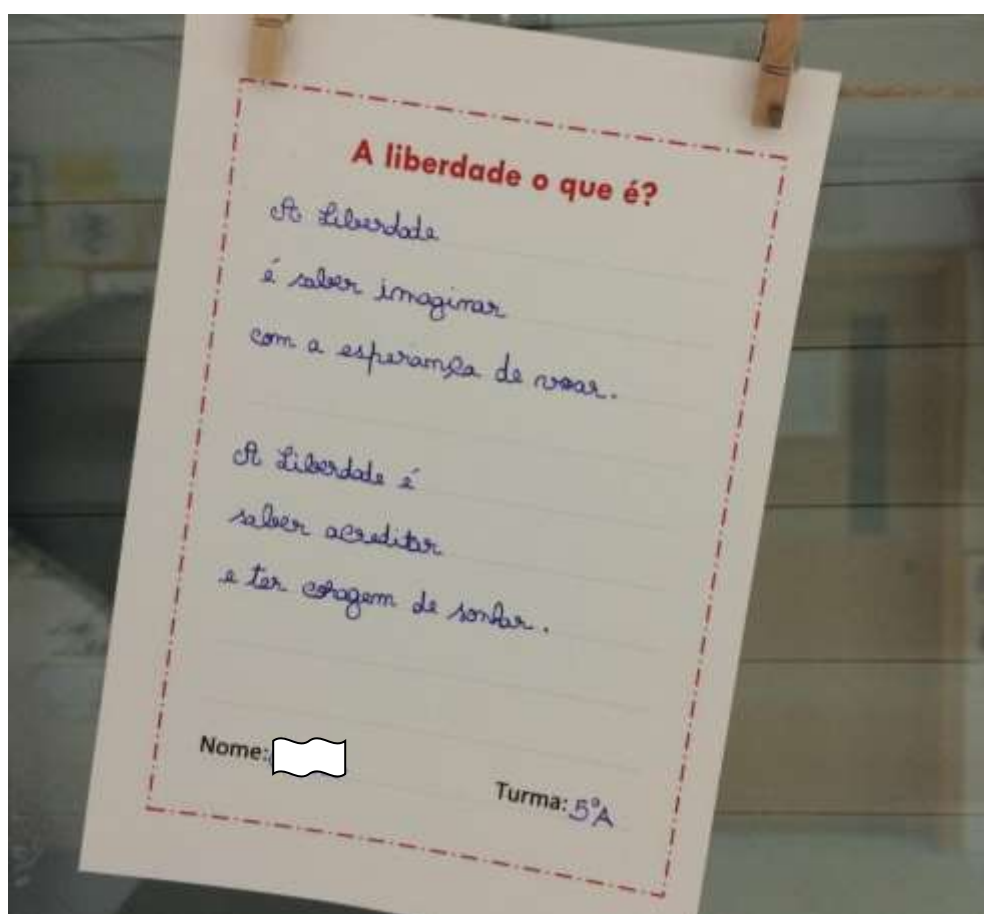 A liberdade o que é?
A Liberdade
é saber imaginar
com a esperança de voar.
A Liberdade é
saber acreditar
e ter coragem de sonhar.
Nome:
Turma: 5ºA